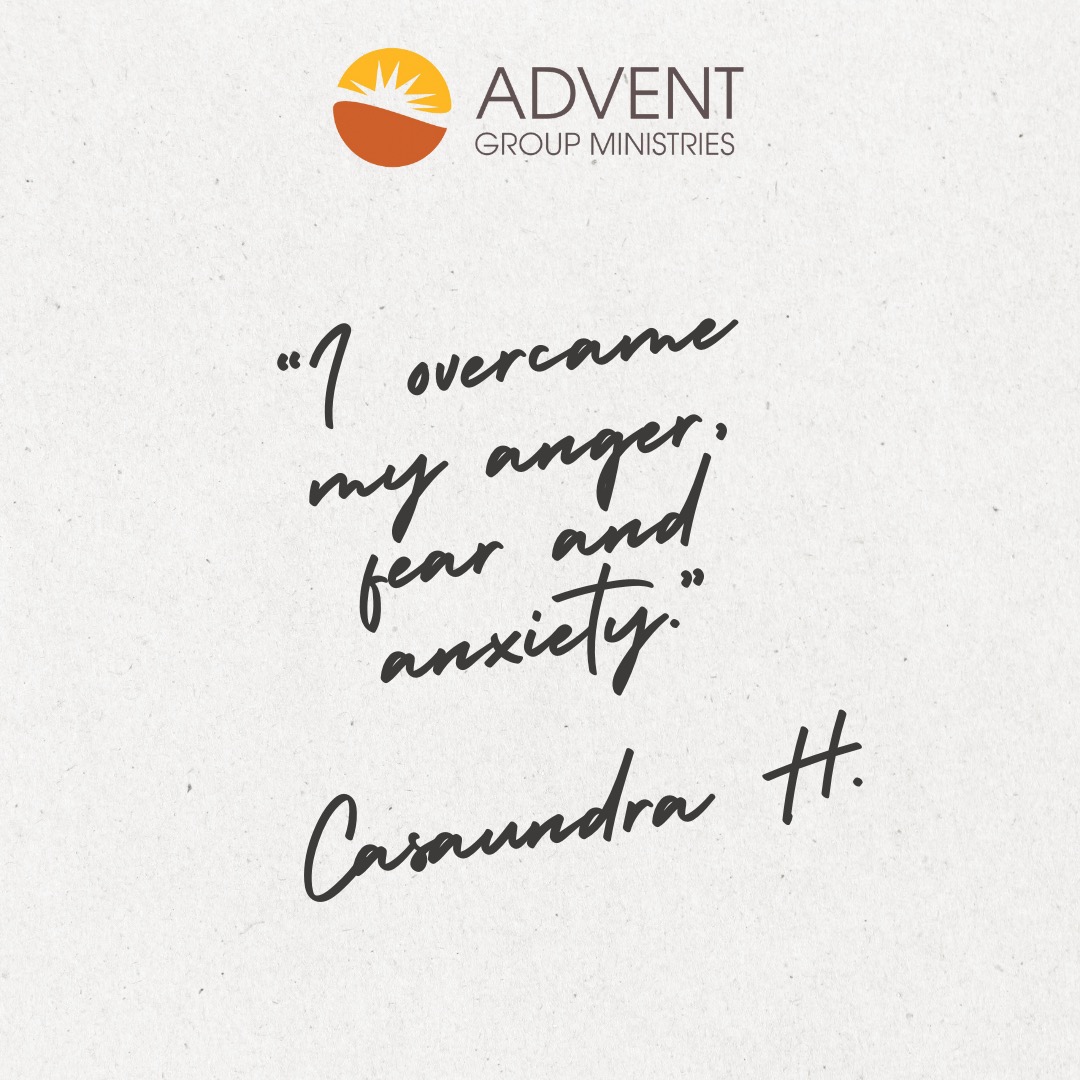 ADVENT
GROUP MINISTRIES
“I overcame
my anger,
fear and
anxiety.”
Casaundra H.